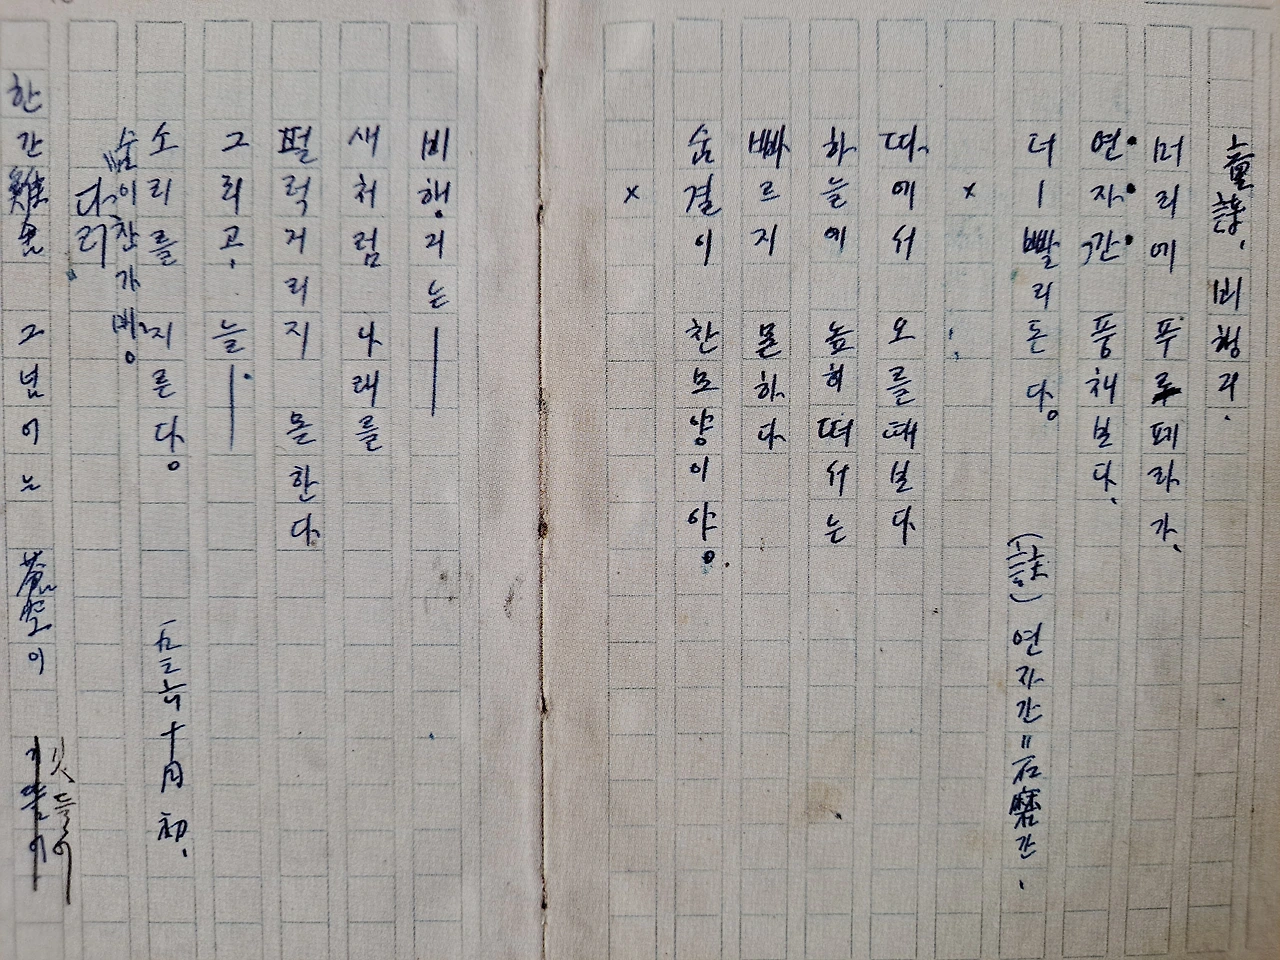 童謠、비행긔.
머리에 푸로페라가、
연자간 풍채보다、
더ㅣ빨리돈다。
(註) 연자간=石磨간.
×
따에서 오를때보다
하늘에 높히떠서는
빠르지 몯하다
숨결이 찬모양이야。
×
비행긔는—
새처럼 나래를
펄럭거리지 몯한다
그리고、늘—
소리를 지른다。
一九三六 十月 初.
숨이찬가베。
다리
한간鷄舍 그넘어는 蒼空이 깃들어